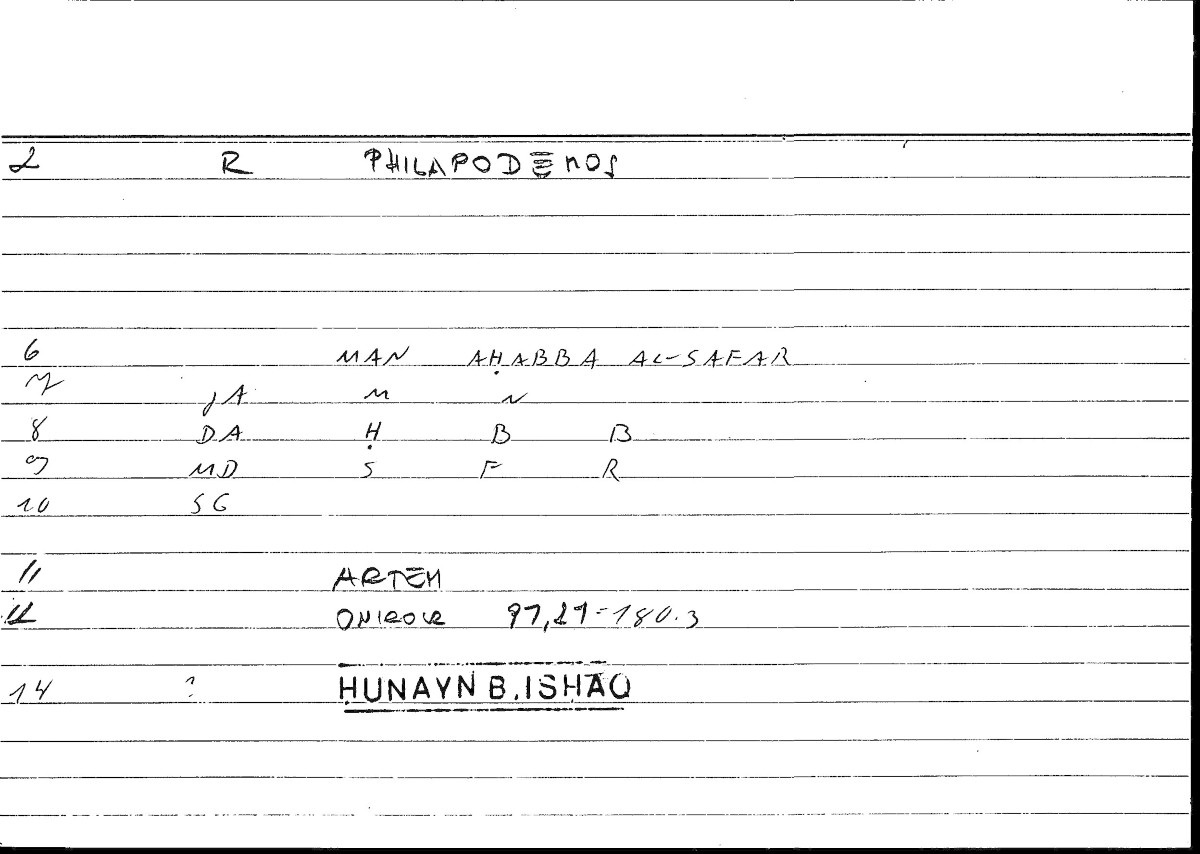 2 R PHILAPODĒMOS
6 MAN AḤABBA AL-SAFAR
7 JA M N
8 DA Ḥ B B
9 MD S F R
10 SG
11 ARTEM
12 ONIROCR 97,21-180.3
14 ? ḤUNAYN B. ISḤAQ